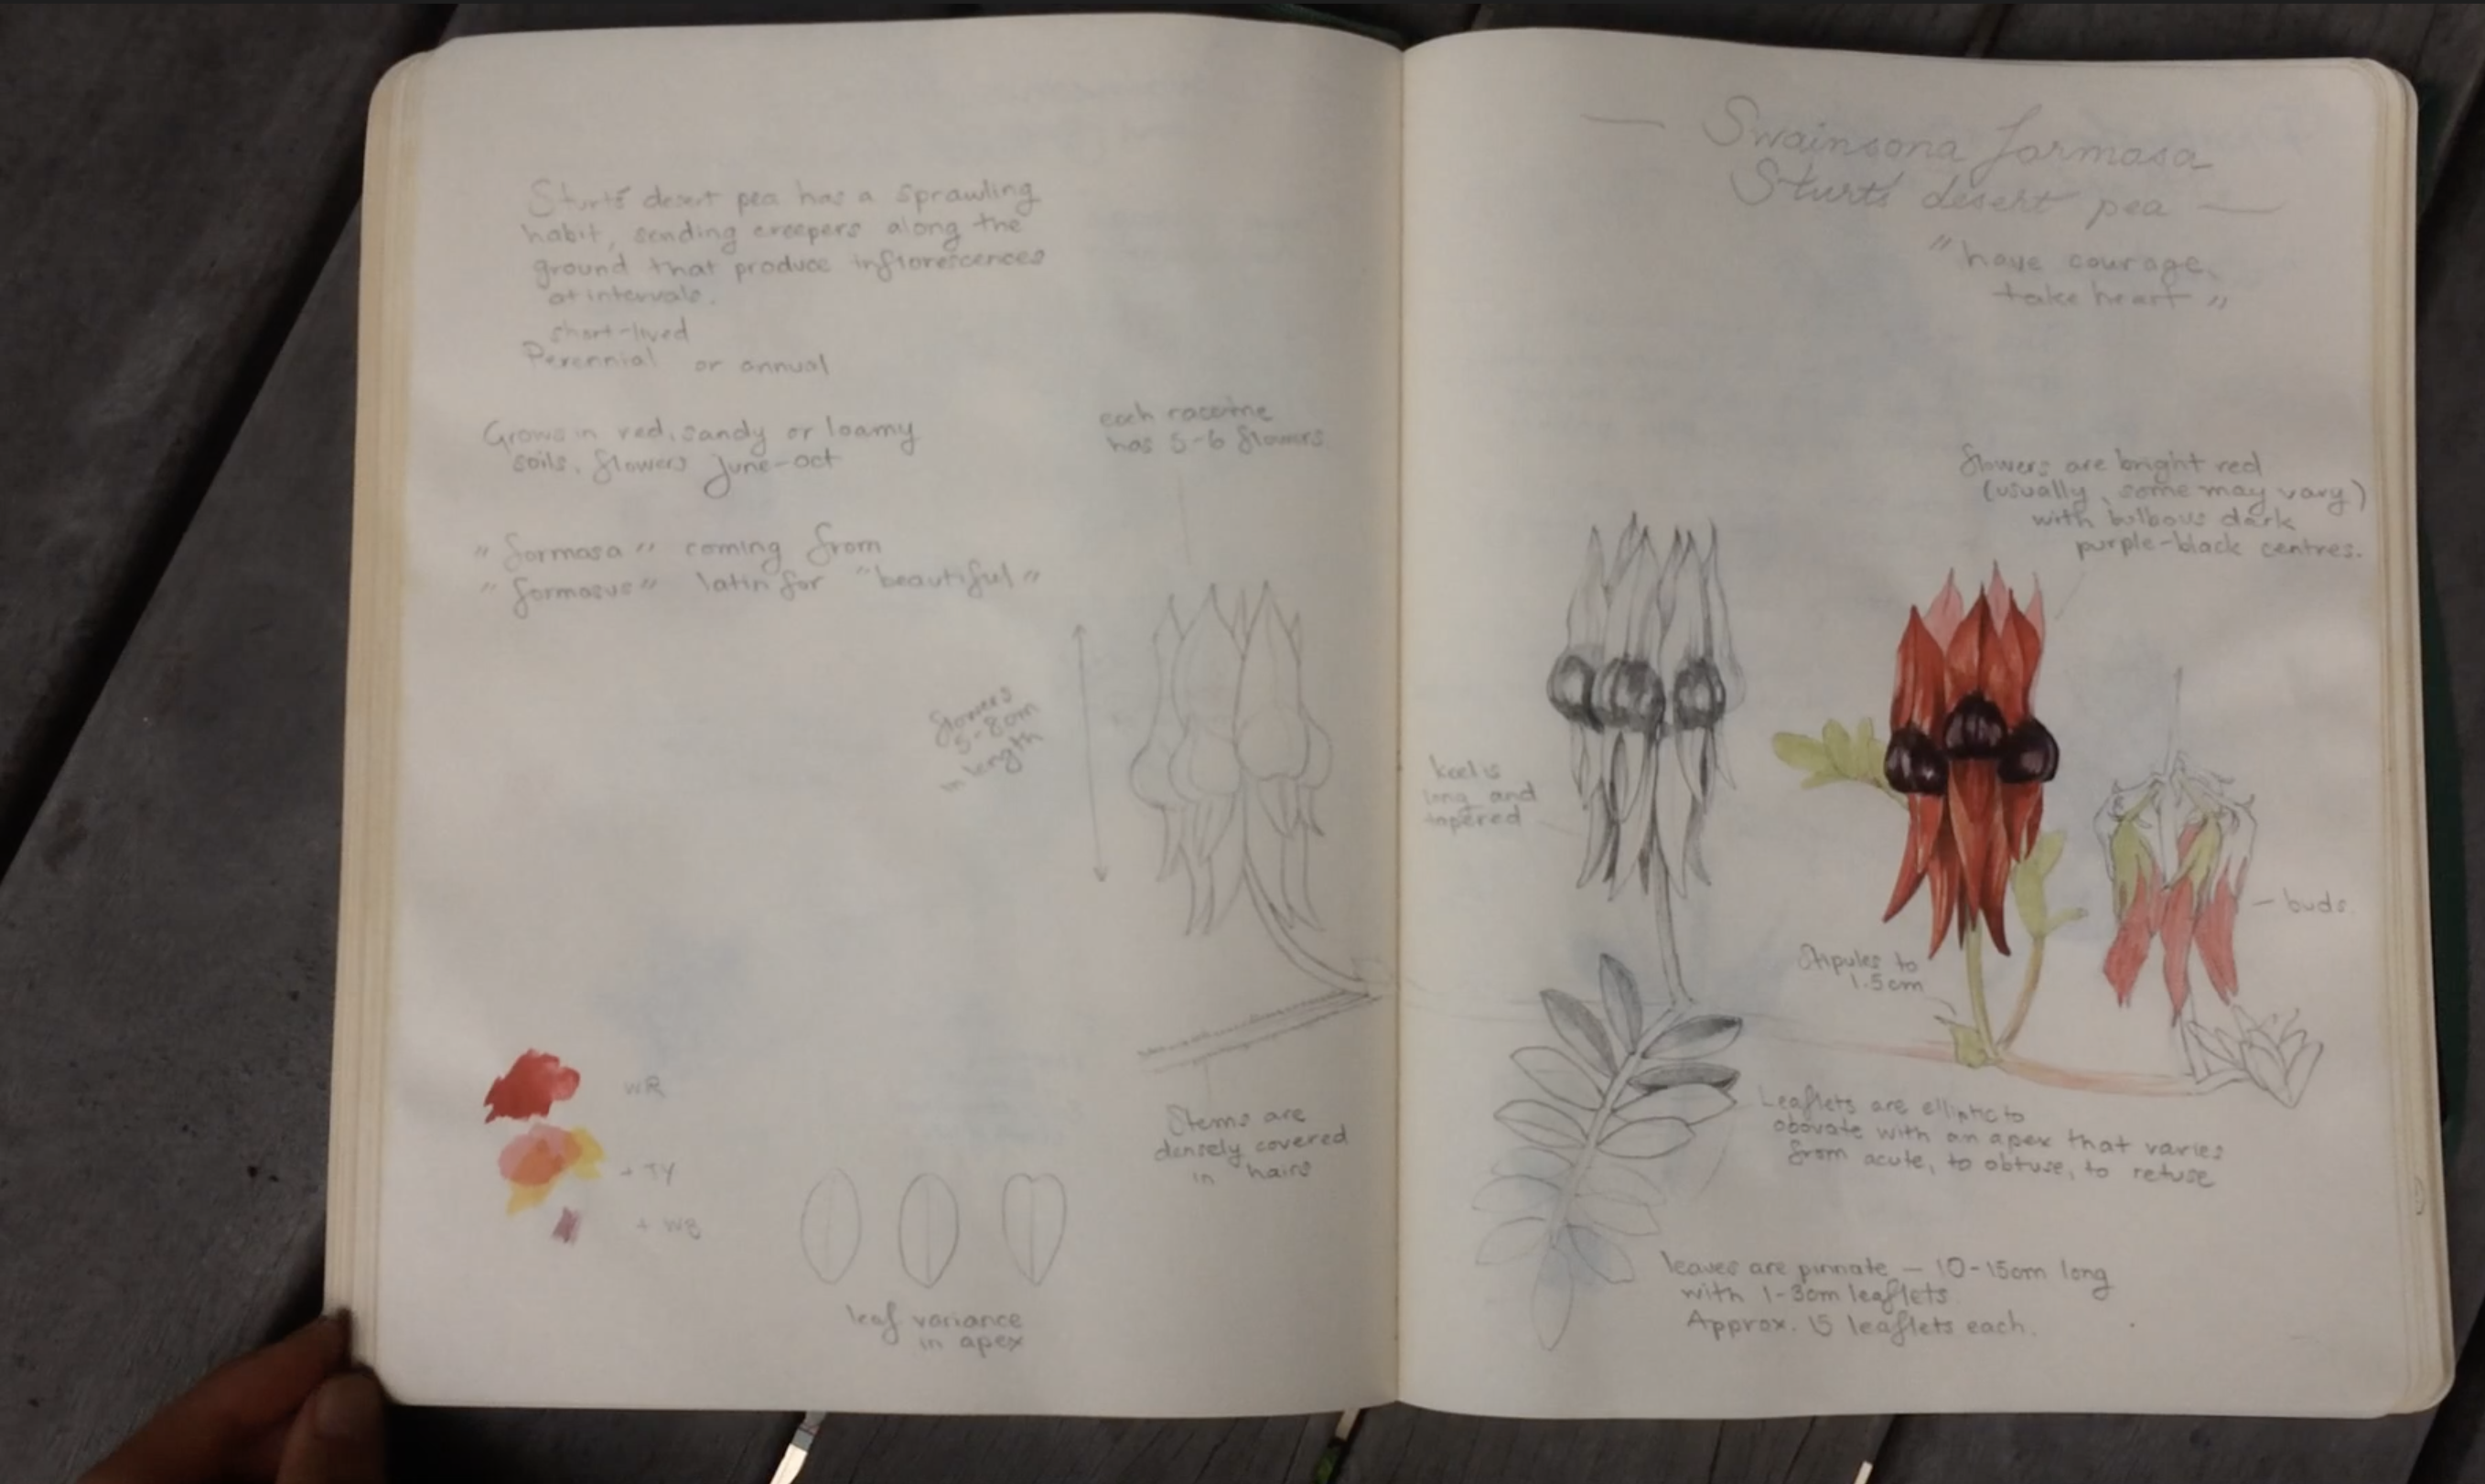 Sturt's desert pea has a sprawling
habit, sending creepers along the
ground that produce inflorescences
at intervals.
short-lived
Perennial or annual
Grows in red, sandy or loamy
soils, flowers June-Oct
"formosa" coming from
"formosus" latin for "beautiful"
each raceme
has 5-6 flowers
flowers
5-8cm
in length
WR
+ TY
+ WB
Stems are
densely covered
in hairs
leaf variance
in apex
— Swainsona formosa
Sturt's desert pea —
"have courage,
take heart"
flowers are bright red
(usually, some may vary)
with bulbous dark
purple-black centres.
keel is
long and
tapered
— buds.
Stipules to
1.5cm
Leaflets are elliptic to
obovate with an apex that varies
from acute, to obtuse, to retuse
leaves are pinnate — 10-15cm long
with 1-3cm leaflets
Approx. 15 leaflets each.